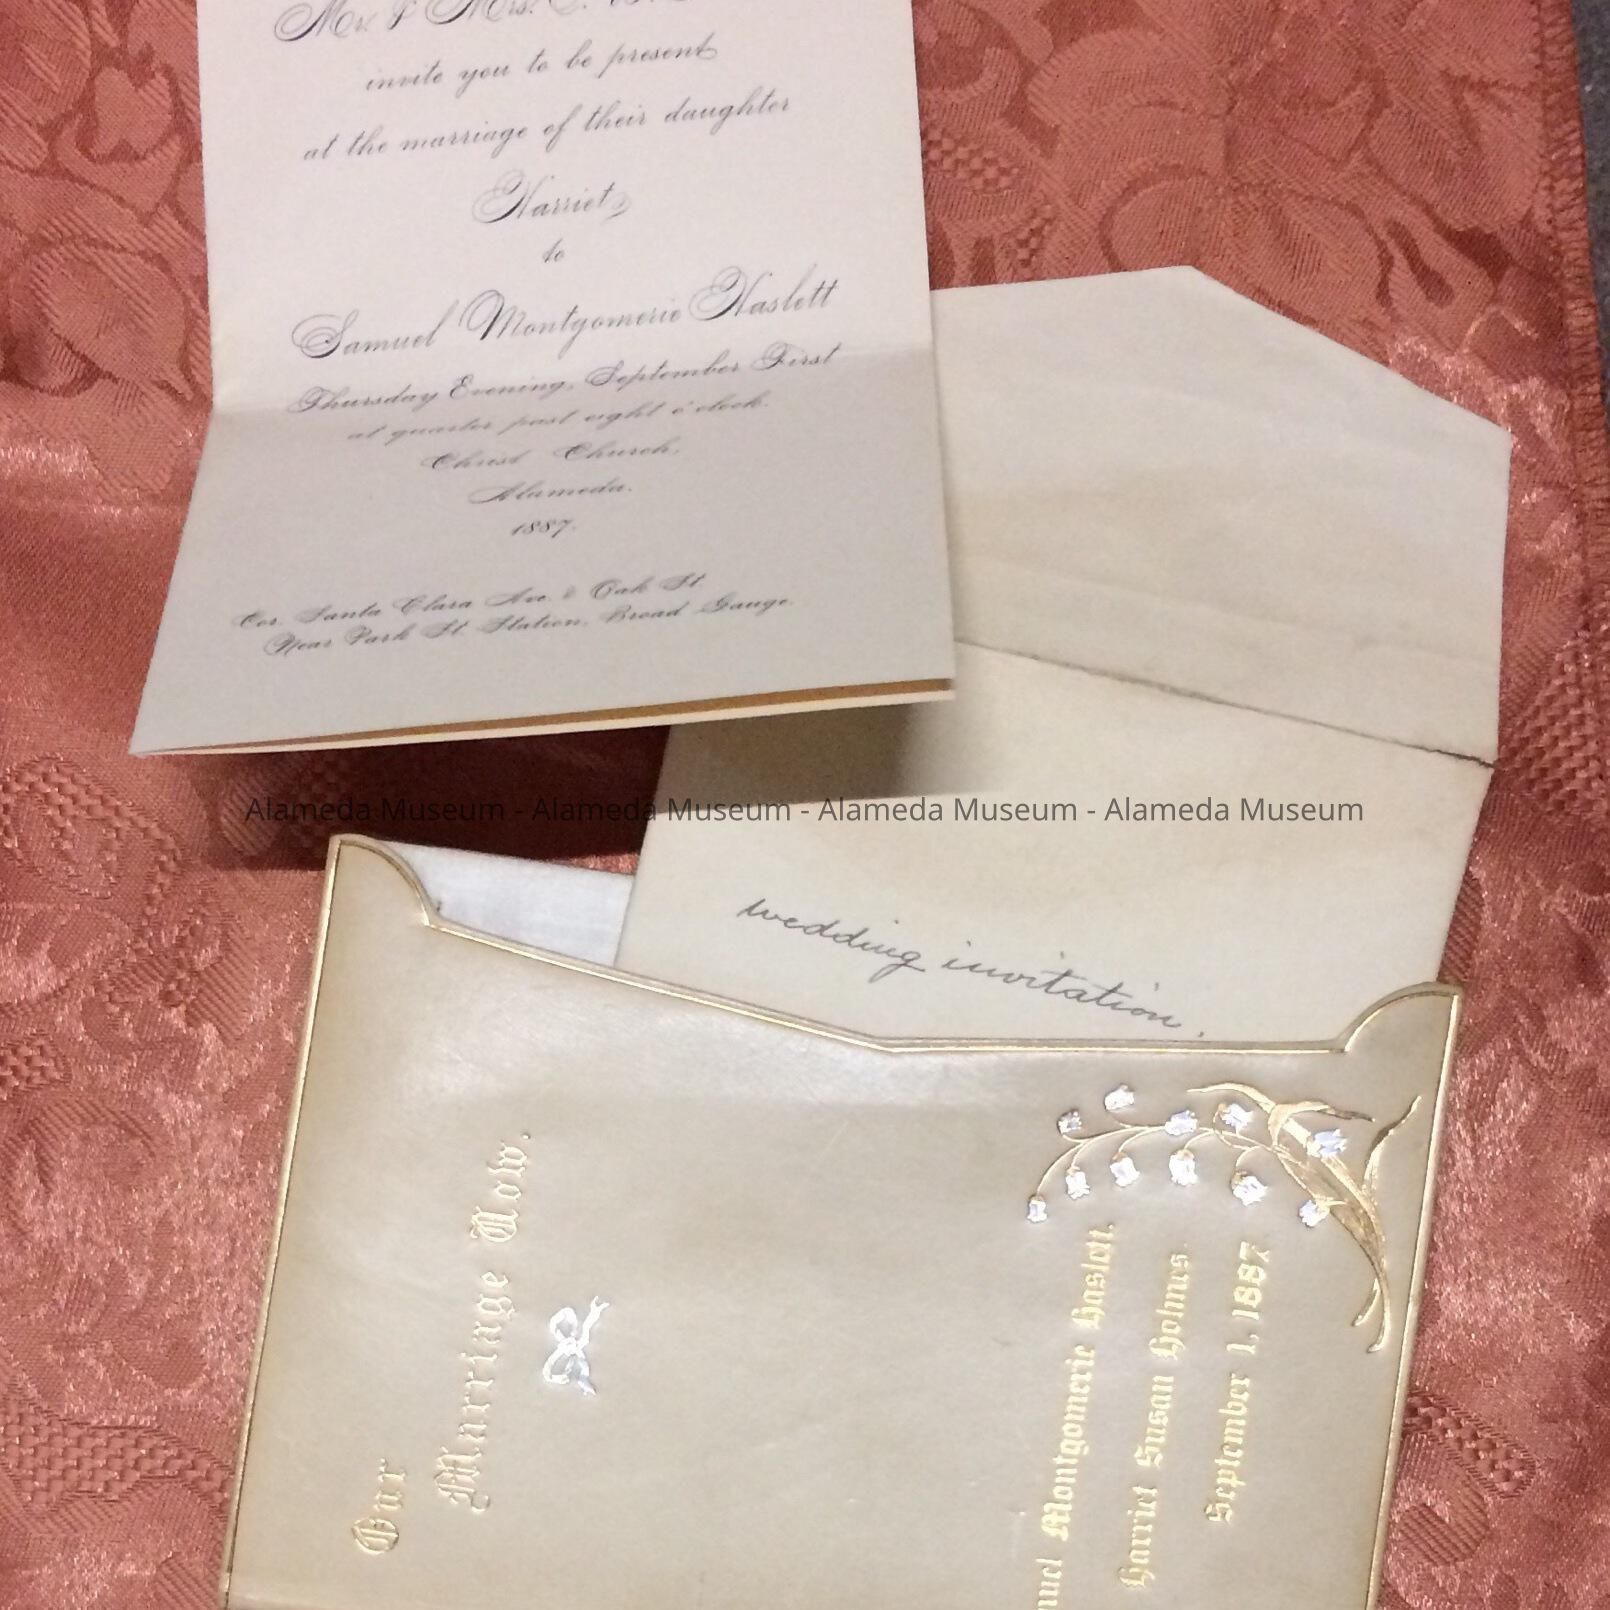 Mr. & Mrs.
invite you to be present
at the marriage of their daughter
Harriet
to
Samuel Montgomerie Haslett
Thursday Evening, September First
at quarter past eight o'clock.
Christ Church,
Alameda.
1887.
Cor. Santa Clara Ave. & Oak St.
Near Park St. Station, Broad Gauge.
Alameda Museum - Alameda Museum - Alameda Museum - Alameda Museum
wedding invitation.
Our
Marriage Vow.
Montgomerie Haslett.
Harriet Susan Holmes.
September 1, 1887